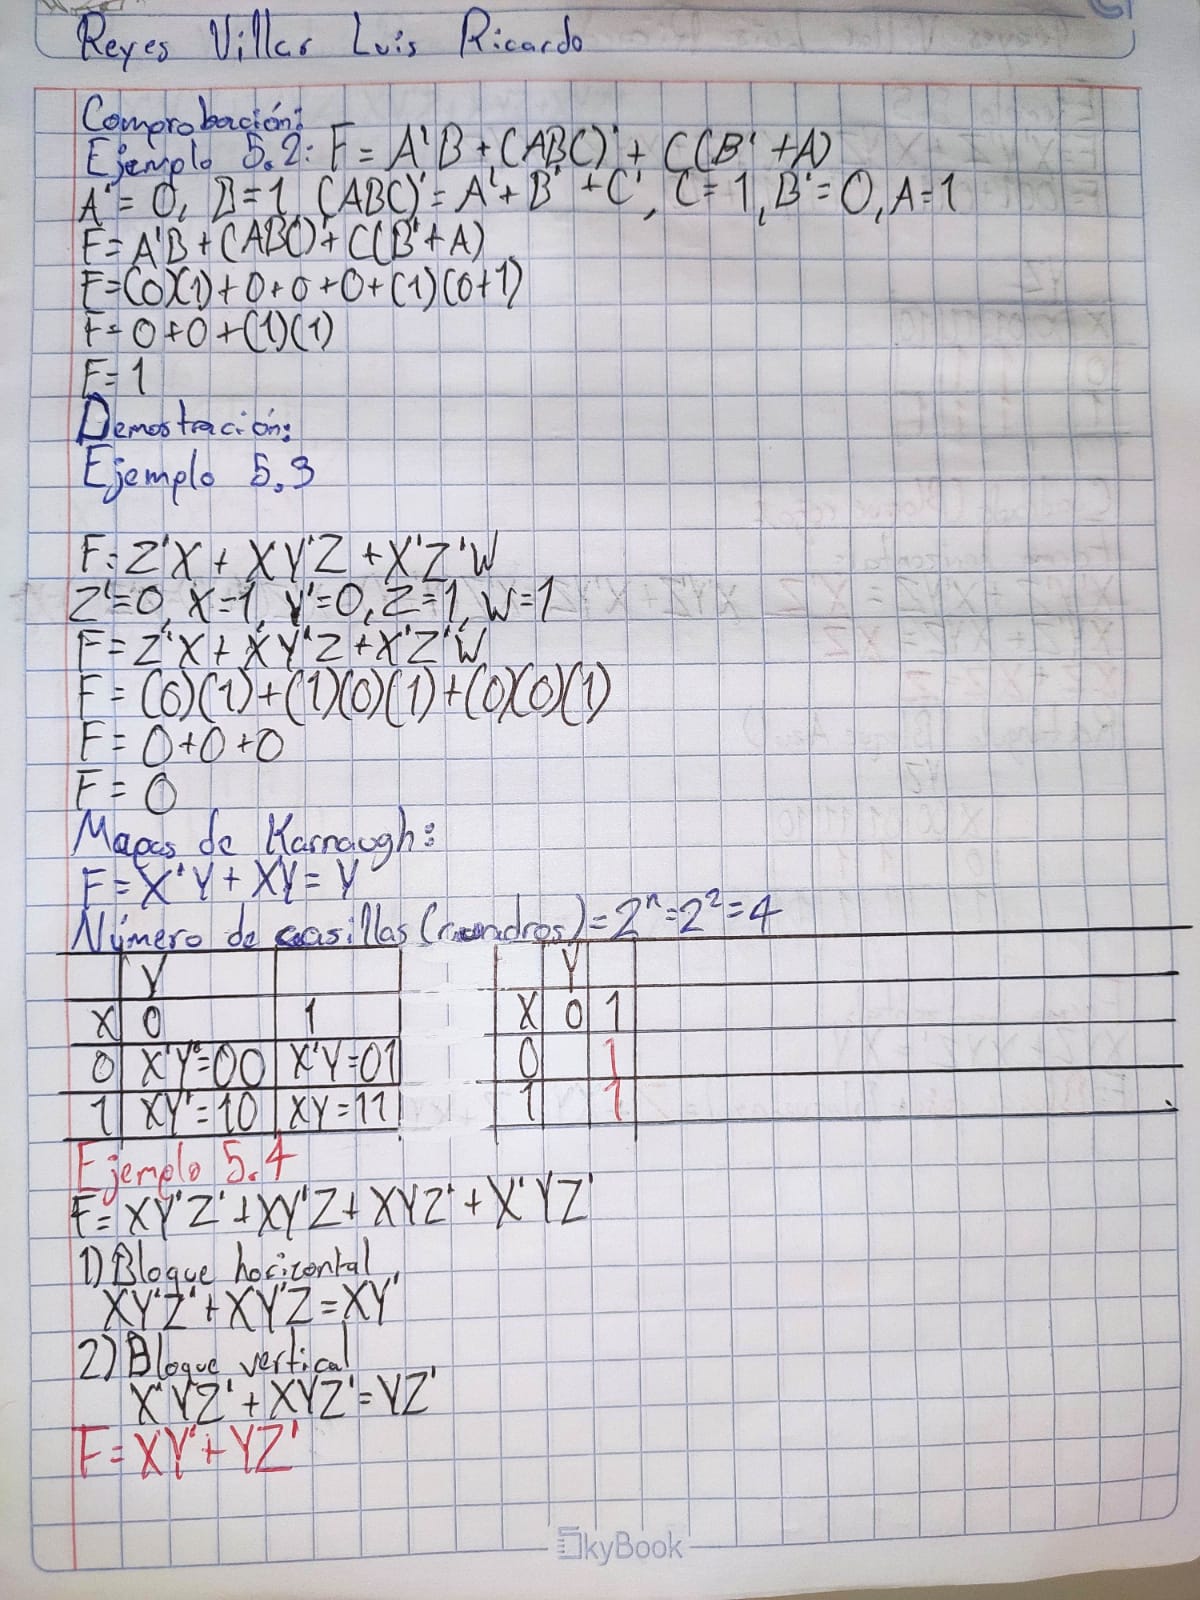 Reyes Villar Luis Ricardo
Comprobación:
Ejemplo 5.2: F = A'B + (ABC)' + C(B' + A)
A' = 0, B = 1, (ABC)' = A' + B' + C', C = 1, B' = 0, A = 1
F = A'B + (ABC)' + C(B' + A)
F = (0)(1) + 0 + 0 + 0 + (1)(0+1)
F = 0 + 0 + (1)(1)
F = 1
Demostración:
Ejemplo 5.3
F: Z'X + XY'Z + X'Z'W
Z' = 0, X = 1, Y' = 0, Z = 1, W = 1
F = Z'X + XY'Z + X'Z'W
F = (0)(1) + (1)(0)(1) + (0)(0)(1)
F = 0 + 0 + 0
F = 0
Mapas de Karnaugh:
F = X'Y + XY = Y
Número de casillas (cuadros) = 2ⁿ = 2² = 4
Y
X 0 1
0 X'Y' = 00 X'Y = 01
1 XY' = 10 XY = 11
Y
X 0 1
0 1
1 1
Ejemplo 5.4
F = XY'Z' + XY'Z + XYZ' + X'YZ'
1) Bloque horizontal
XY'Z' + XY'Z = XY'
2) Bloque vertical
X'YZ' + XYZ' = YZ'
F = XY' + YZ'
SkyBook